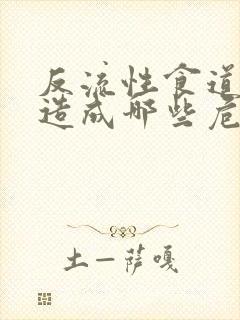 反流性食道
造成哪些危
土一萨嘎